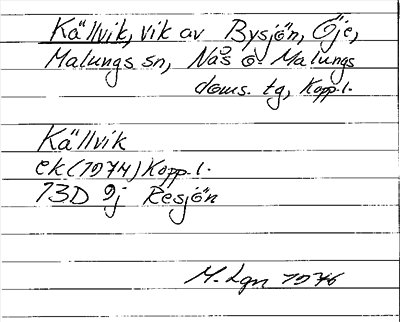 Källvik, vik av Bysjön, Öje,
Malungs sn, Nås o Malungs
doms. tg, Kopp.l.
Källvik
ek(1974)Kopp.l.
13D 9j Resjön
M. Lgn 1976